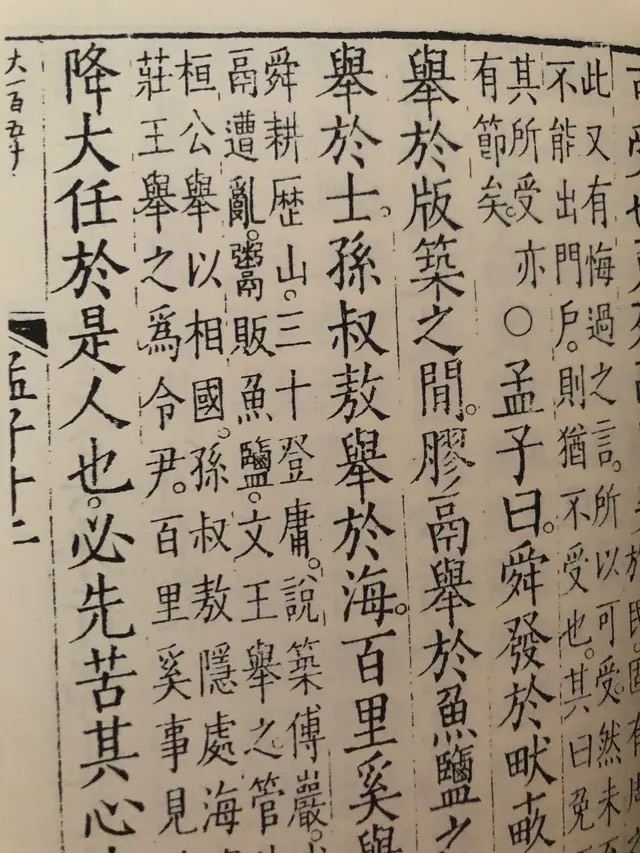 此又有悔過之言。所以可受。然未
不能出門戶。則猶不受也。其曰免
其所受亦
有節矣。
○孟子曰。舜發於畎畝
舉於版築之閒。膠鬲舉於魚鹽之
舉於士。孫叔敖舉於海。百里奚舉
舜耕歷山。三十登庸。說築傅巖。
鬲遭亂。鬻販魚鹽。文王舉之。管
桓公舉以相國。孫叔敖隱處海
莊王舉之爲令尹。百里奚事見
降大任於是人也。必先苦其心
大一百五十
孟子十二